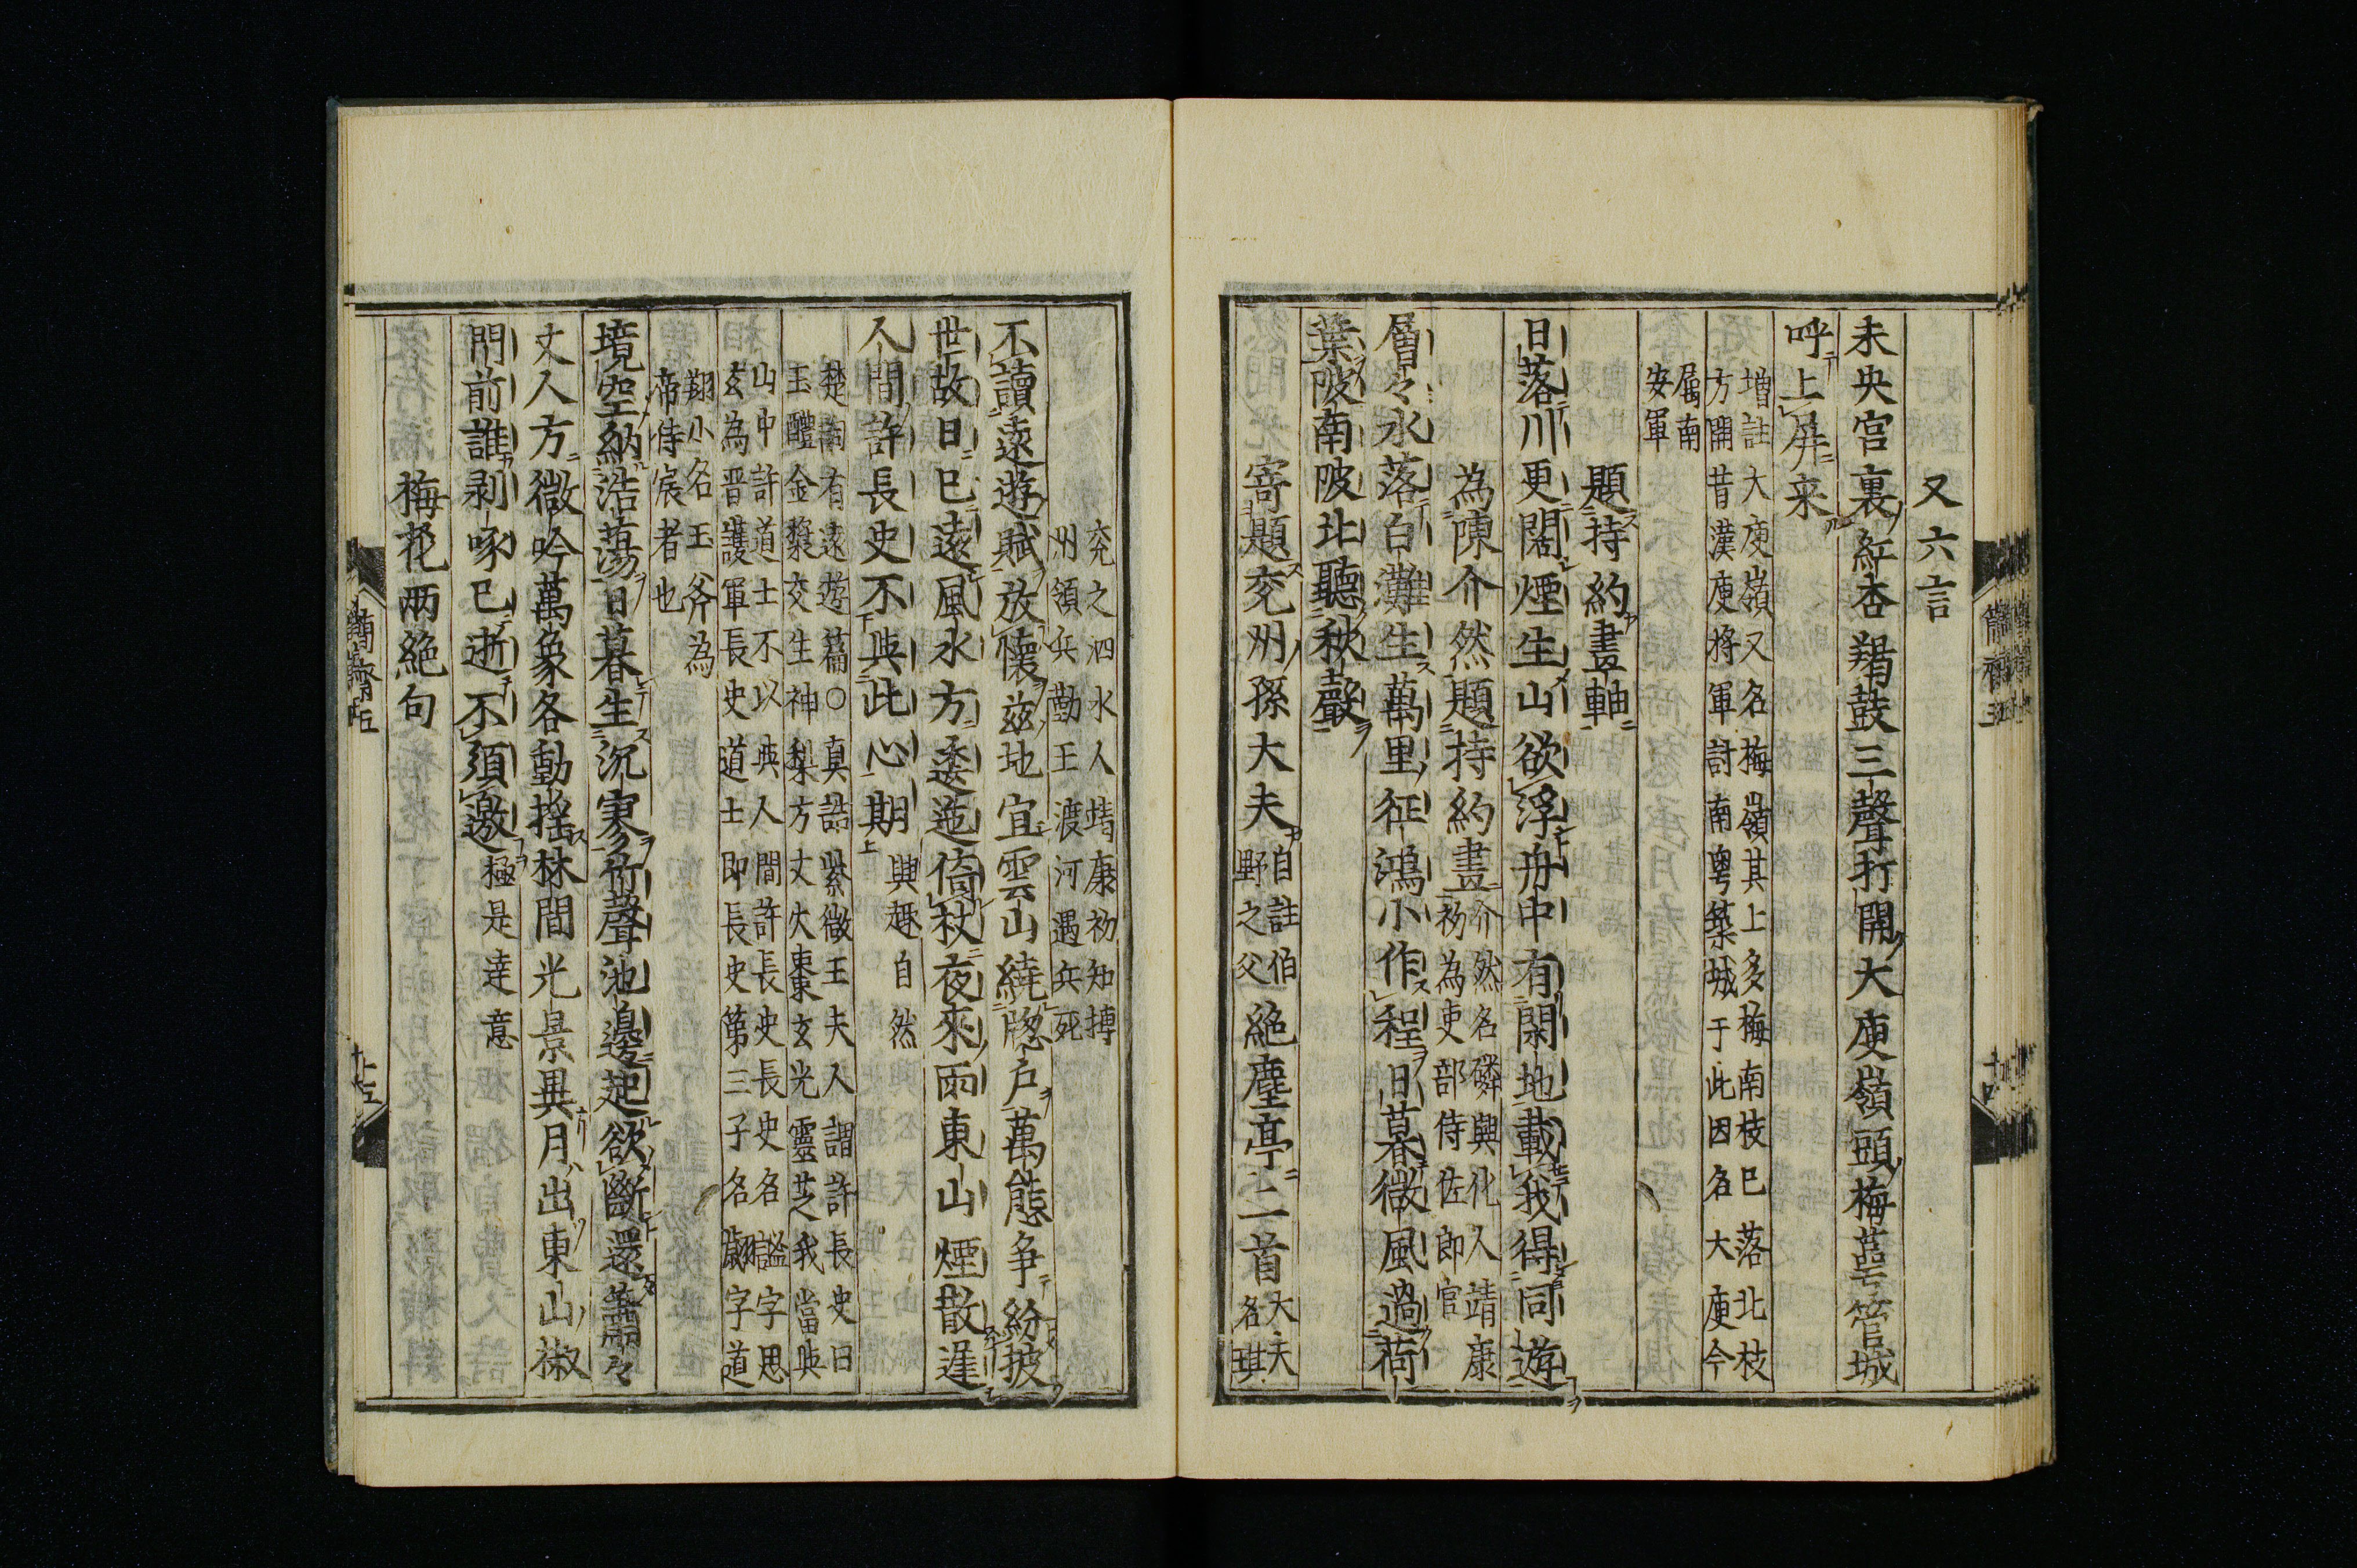 又六言
未央宮裏紅杏羯鼓三聲打開大庾嶺頭梅萼管城
呼上屏来
增註大庾嶺又名梅嶺其上多梅南枝已落北枝
方開昔漢庾將軍討南粤築城于此因名大庾今
屬南
安軍
題持約畫軸
日落川更闊煙生山欲浮舟中有閑地載我得同遊
為陳介然題持約畫
介然名磷興化人靖康
初為吏部侍佐郎官
層々水落白灘生萬里征鴻小作程日暮微風過荷
葉陂南陂北聽秋聲
寄題兖州孫大夫
自註伯
野之父
絶塵亭二首
大夫
名琪
兖之泗水人靖康初知摶
州領兵勤王渡河遇兵死
不讀遠遊賦放懷兹地宜雲山繞牕户萬態争紛披
世故日已遠風水方逶迤倚杖夜來雨東山煙散遲
人間許長史不與此心期
興趣自然
楚詞有遠遊篇○真誥紫微王夫人謂許長史曰
玉醴金漿交生神梨方丈火棗玄光靈芝我當與
山中許道士不以與人間許長史長史名謐字思
玄為晋護軍長史道士即長史第三子名翽字道
翔小名玉斧為
帝侍宸者也
境空納浩蕩日暮生沉寥竹聲池邊起欲斷還蕭々
丈人方微吟萬象各動摇林間光景異月出東山椒
門前誰剥啄已逝不須邀
極是達意
梅花兩絶句
簡齋